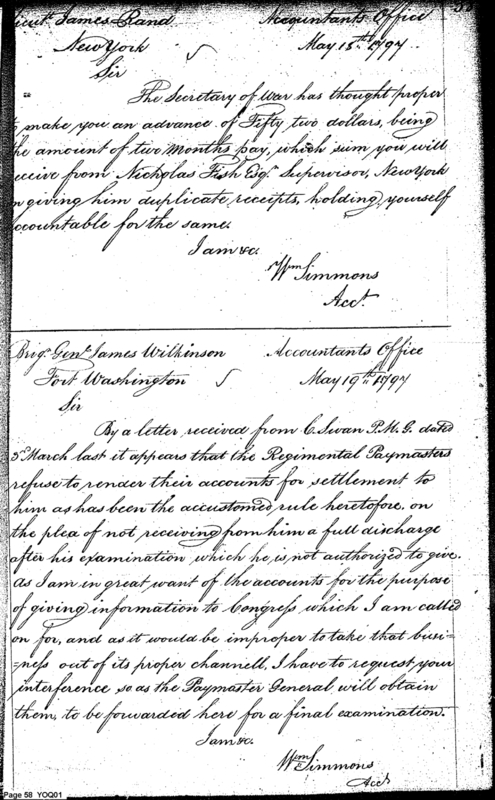 Lieut. James Rand Accountants Office
New York May 18th. 1797
Sir
The Secretary of War has thought proper
to make you an advance of Fifty two dollars, being
the amount of two Months pay, which sum you will
receive from Nicholas Fish Esqr. Supervisor, New York
on giving him duplicate receipts, holding yourself
accountable for the same.
I am &c.
Wm Simmons
Acct.
Brigr. Genl. James Wilkinson Accountants Office
Fort Washington May 19th. 1797
Sir
By a letter received from C. Swan P.M.G. dated
3d March last it appears that the Regimental Paymasters
refuse to render their accounts for settlement to
him as has been the accustomed rule heretofore, on
the plea of not receiving from him a full discharge
after his examination which he is not authorized to give.
As I am in great want of the accounts for the purpose
of giving information to Congress which I am called
on for, and as it would be improper to take that busi=
=ness out of its proper channell, I have to request your
interference so as the Paymaster General will obtain
them, to be forwarded here for a final examination.
I am &c.
Wm Simmons
Acct
Page 58 YOQ01